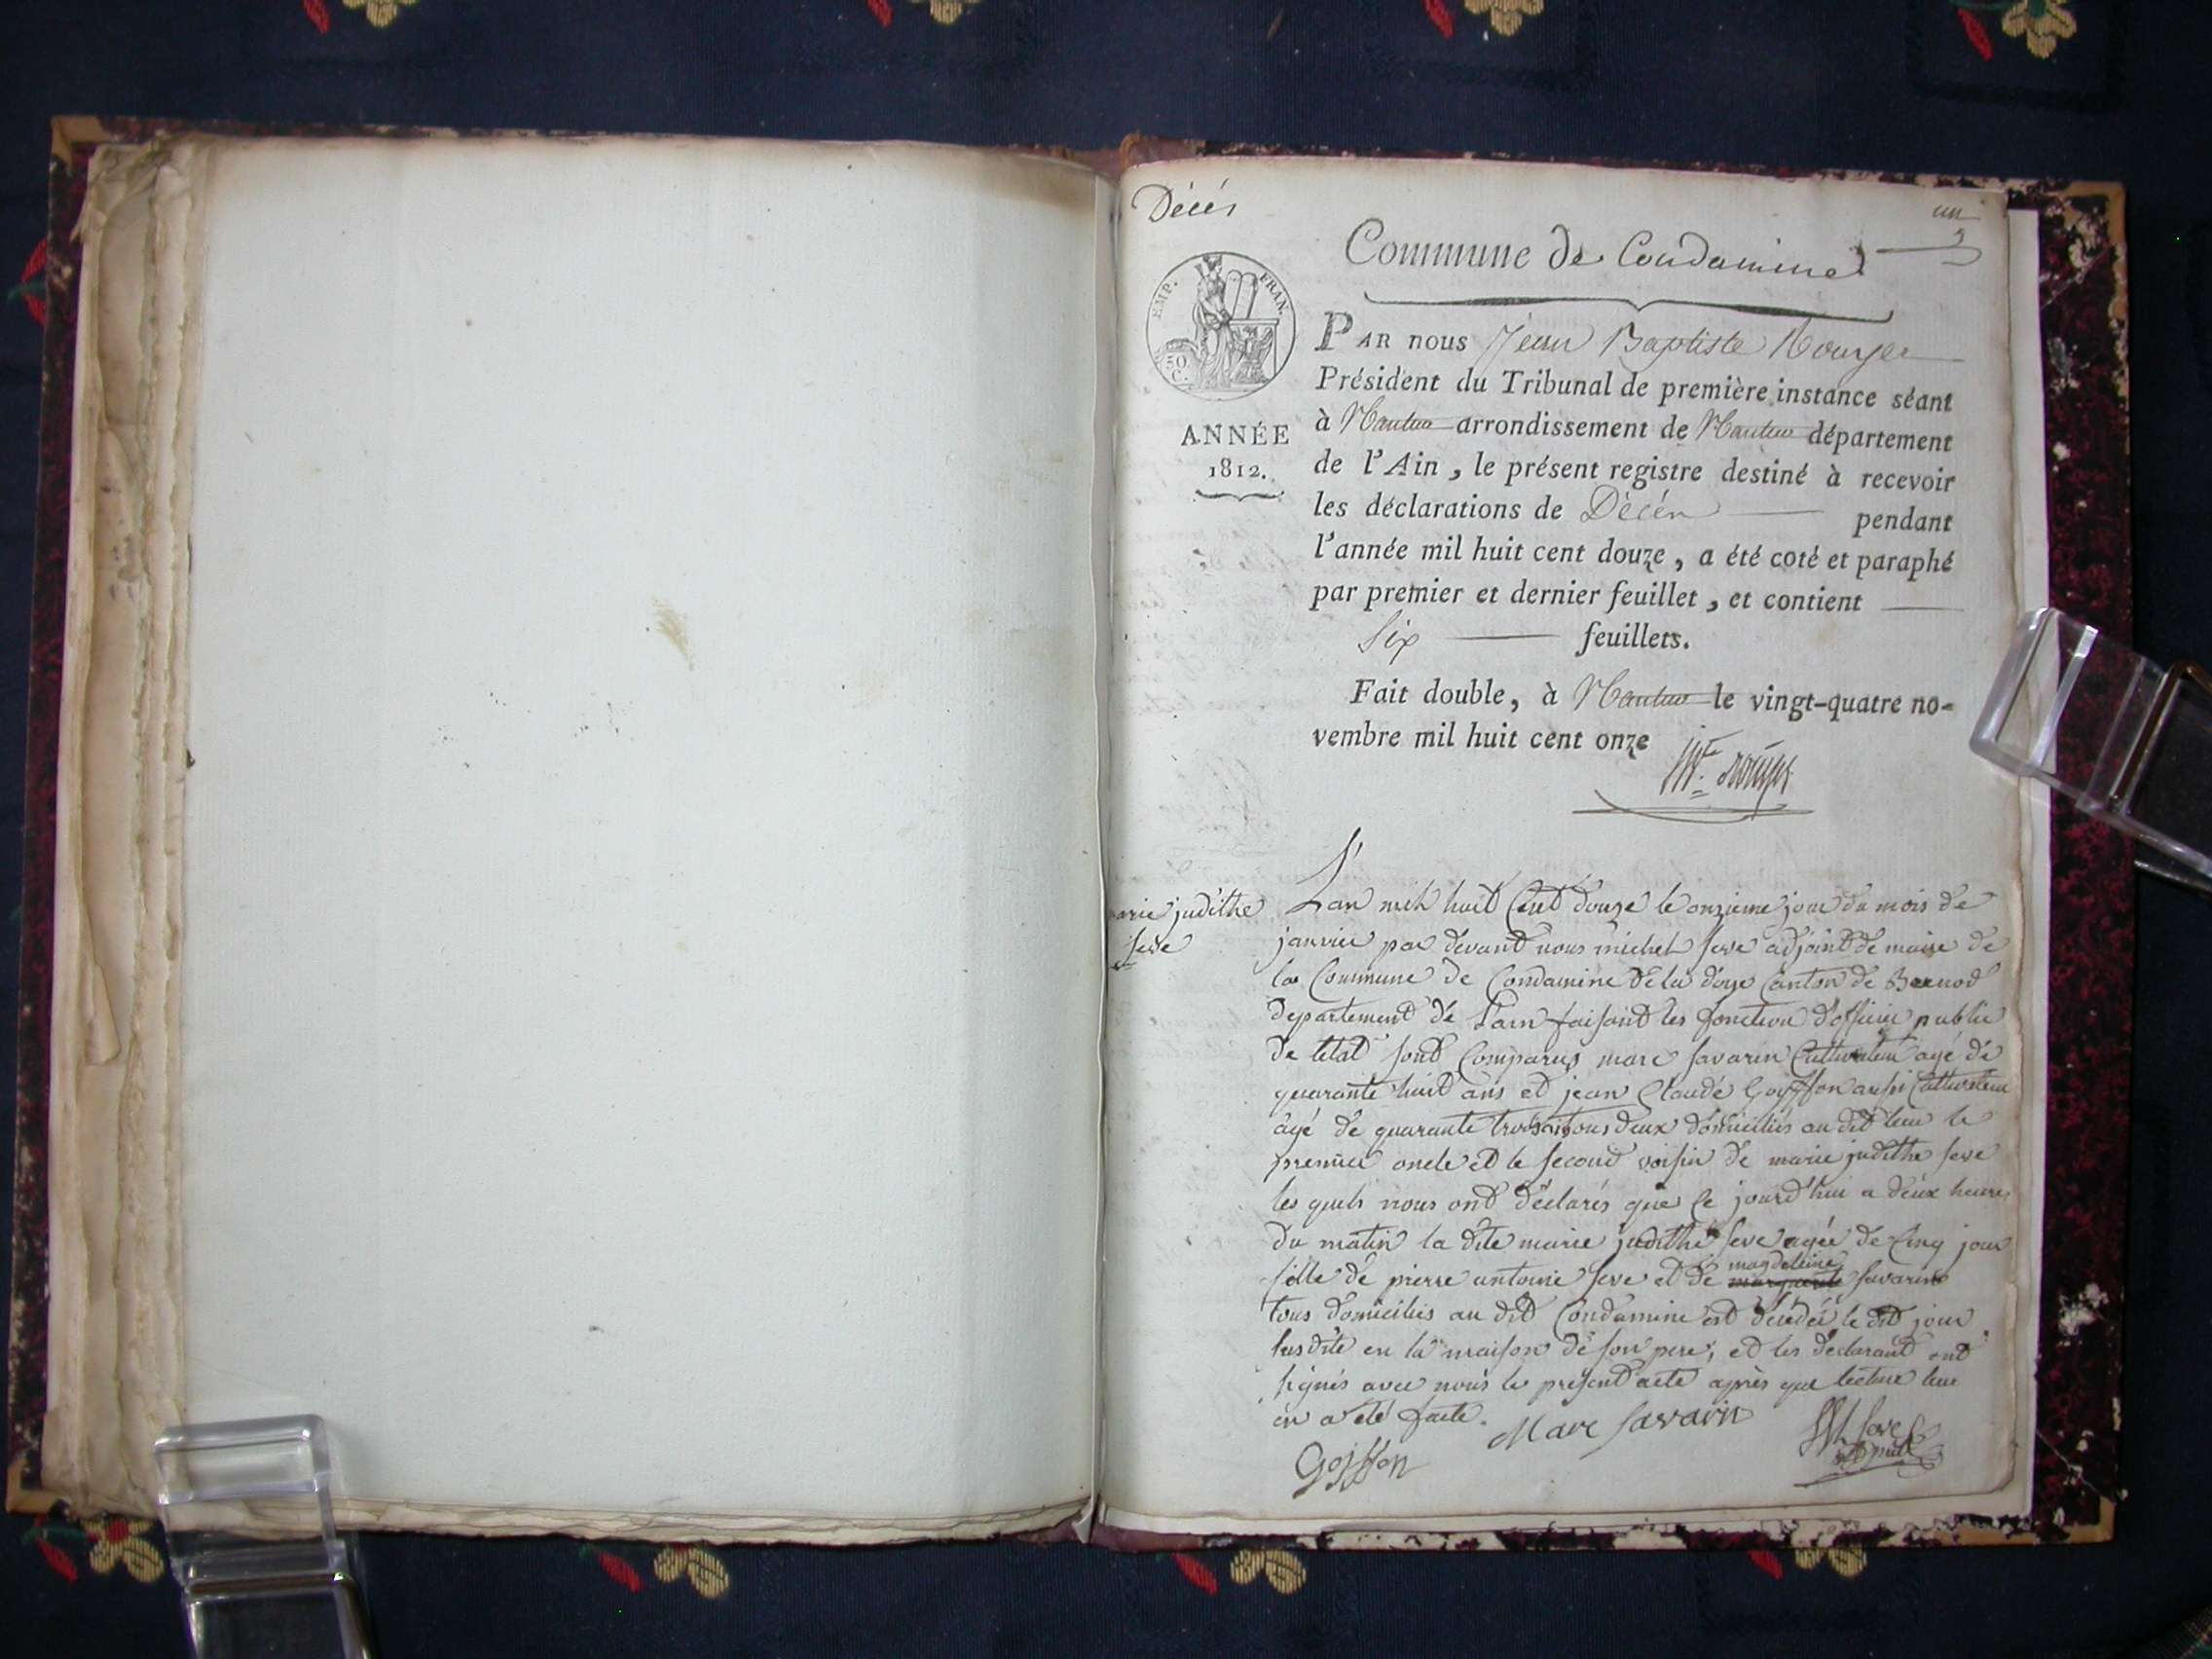 Décés
un
Commune de Condamine
EMP. FRAN.
50 C.
ANNÉE
1812.
PAR nous Jean Baptiste Rouyer
Président du Tribunal de première instance séant
à Nantua arrondissement de Nantua département
de l'Ain, le présent registre destiné à recevoir
les déclarations de Décés pendant
l'année mil huit cent douze, a été coté et paraphé
par premier et dernier feuillet, et contient
Six feuillets.
Fait double, à Nantua le vingt-quatre no-
vembre mil huit cent onze
marie judithe
seve
L'an mil huit Cent douze le onzieme jour du mois de
janvier par devant nous michel seve adjoint de maire de
la Commune de Condamine de la doye Canton de Brenod
departement de Lain faisant les fonction d'officier public
de letat sont Comparus marc savarin Cultivateur agé de
quarante huit ans et jean Claude Goyffon aussi Cultivateur
âgé de quarante trois ans tous deux domiciliés au dit lieu le
premier oncle et le second voisin de marie judithe seve
les quels nous ont déclarés que ce jourd'hui a deux heures
du matin la dite marie judithe seve agée de Cinq jour
fille de pierre antoine seve et de magdeleine savarin
tous domiciliés au dit Condamine est décédée le dit jour
susdite en la maison de son pere, et les déclarant ont
signés avec nous le present acte après que lecture leur
en a été faite. Marc Savarin
Goiffon